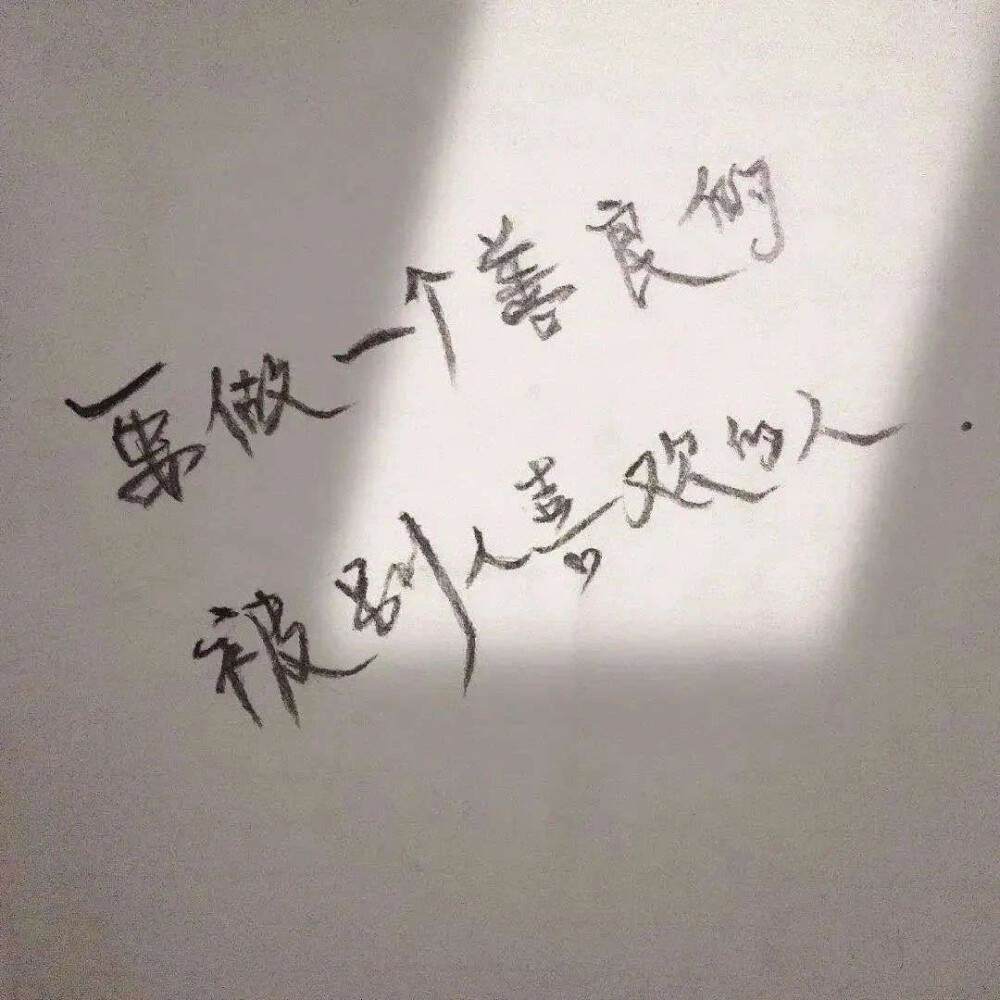 要做一个善良的
被别人喜欢的人.